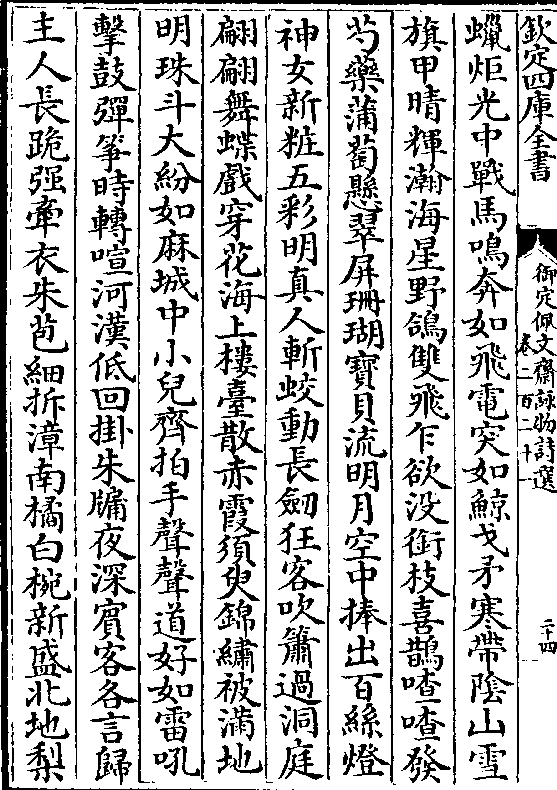 欽定四庫全書
御定佩文齋詠物詩選
卷二百二十
二十四
蠟炬光中戰馬鳴奔如飛電突如鯨戈矛寒帶陰山雪
旗甲晴輝瀚海星野鴿雙飛乍欲没銜枝喜鵲喳喳發
芍藥蒲萄懸翠屏珊瑚寶貝流明月空中捧出百絲燈
神女新粧五彩明真人斬蛟動長劒狂客吹簫過洞庭
翩翩舞蝶戲穿花海上樓臺散赤霞須臾錦繡被滿地
明珠斗大紛如麻城中小兒齊拍手聲聲道好如雷吼
擊鼓彈箏時轉喧河漢低回掛朱牖夜深賓客各言歸
主人長跪强牽衣朱苞細拆漳南橘白椀新盛北地梨